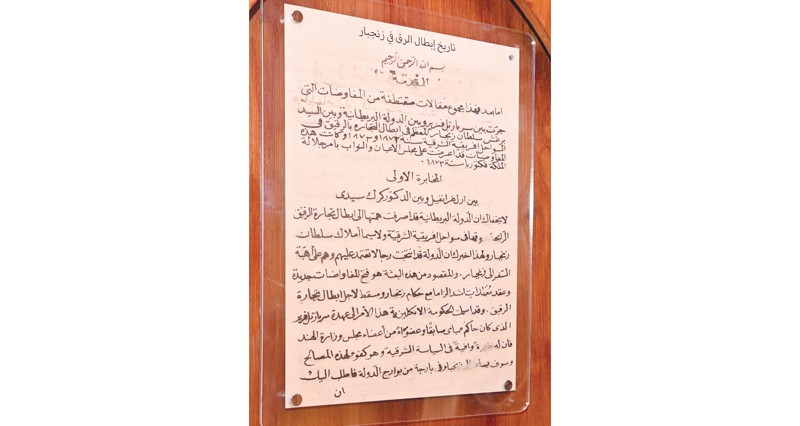 تاريخ إبطال الرق في زنجبار
بسم الله الرحمن الرحيم
المقدمة
اما بعد فهذا مجموع مقالات مقتطفة من المفاوضات التي
جرت بين سر بارتل فرير وبين الدولة البريطانية وبين السيد
برغش سلطان زنجبار المعظم في إبطال التجارة بالرقيق في
السواحل افريقية الشرقية سنة ١٨٧٢ و ١٨٧٣ وكانت هذه
المفاوضات قد اعرضت على مجلس الاعيان والنواب بامر جلالة
الملكة فكتوريا سنة ١٨٧٣.
المخابرة الاولى
بين ارل غرانفيل وبين الدكتور كرك سيدى
لا يخفاك ان الدولة البريطانية قد اصرفت همتها الى ابطال تجارة الرقيق
في سواحل افريقية الشرقية ولا سيما أملاك سلطان
زنجبار ولهذا اخبرك ان الدولة قد انتخبت رجالا تعتمد عليهم وهم على أهبة
السفر الى زنجبار. والمقصود من هذه البعثة هو فتح المفاوضات جديدة
وعقد مع حكام زنجبار ومسقط لاجل ابطال تجارة
الرقيق. وقد الحكومة الانكليزية هذا الأمر الى عهدة سر بارتل فرير
الذى كان حاكم مباى سابقا وعضوا من أعضاء مجلس وزارة الهند
فان له وافية فى السياسة الشرقية وهو كفو لهذه المصالح
وسوف زنجبار في بارجة من بوارج الدولة فاطلب اليك
ان